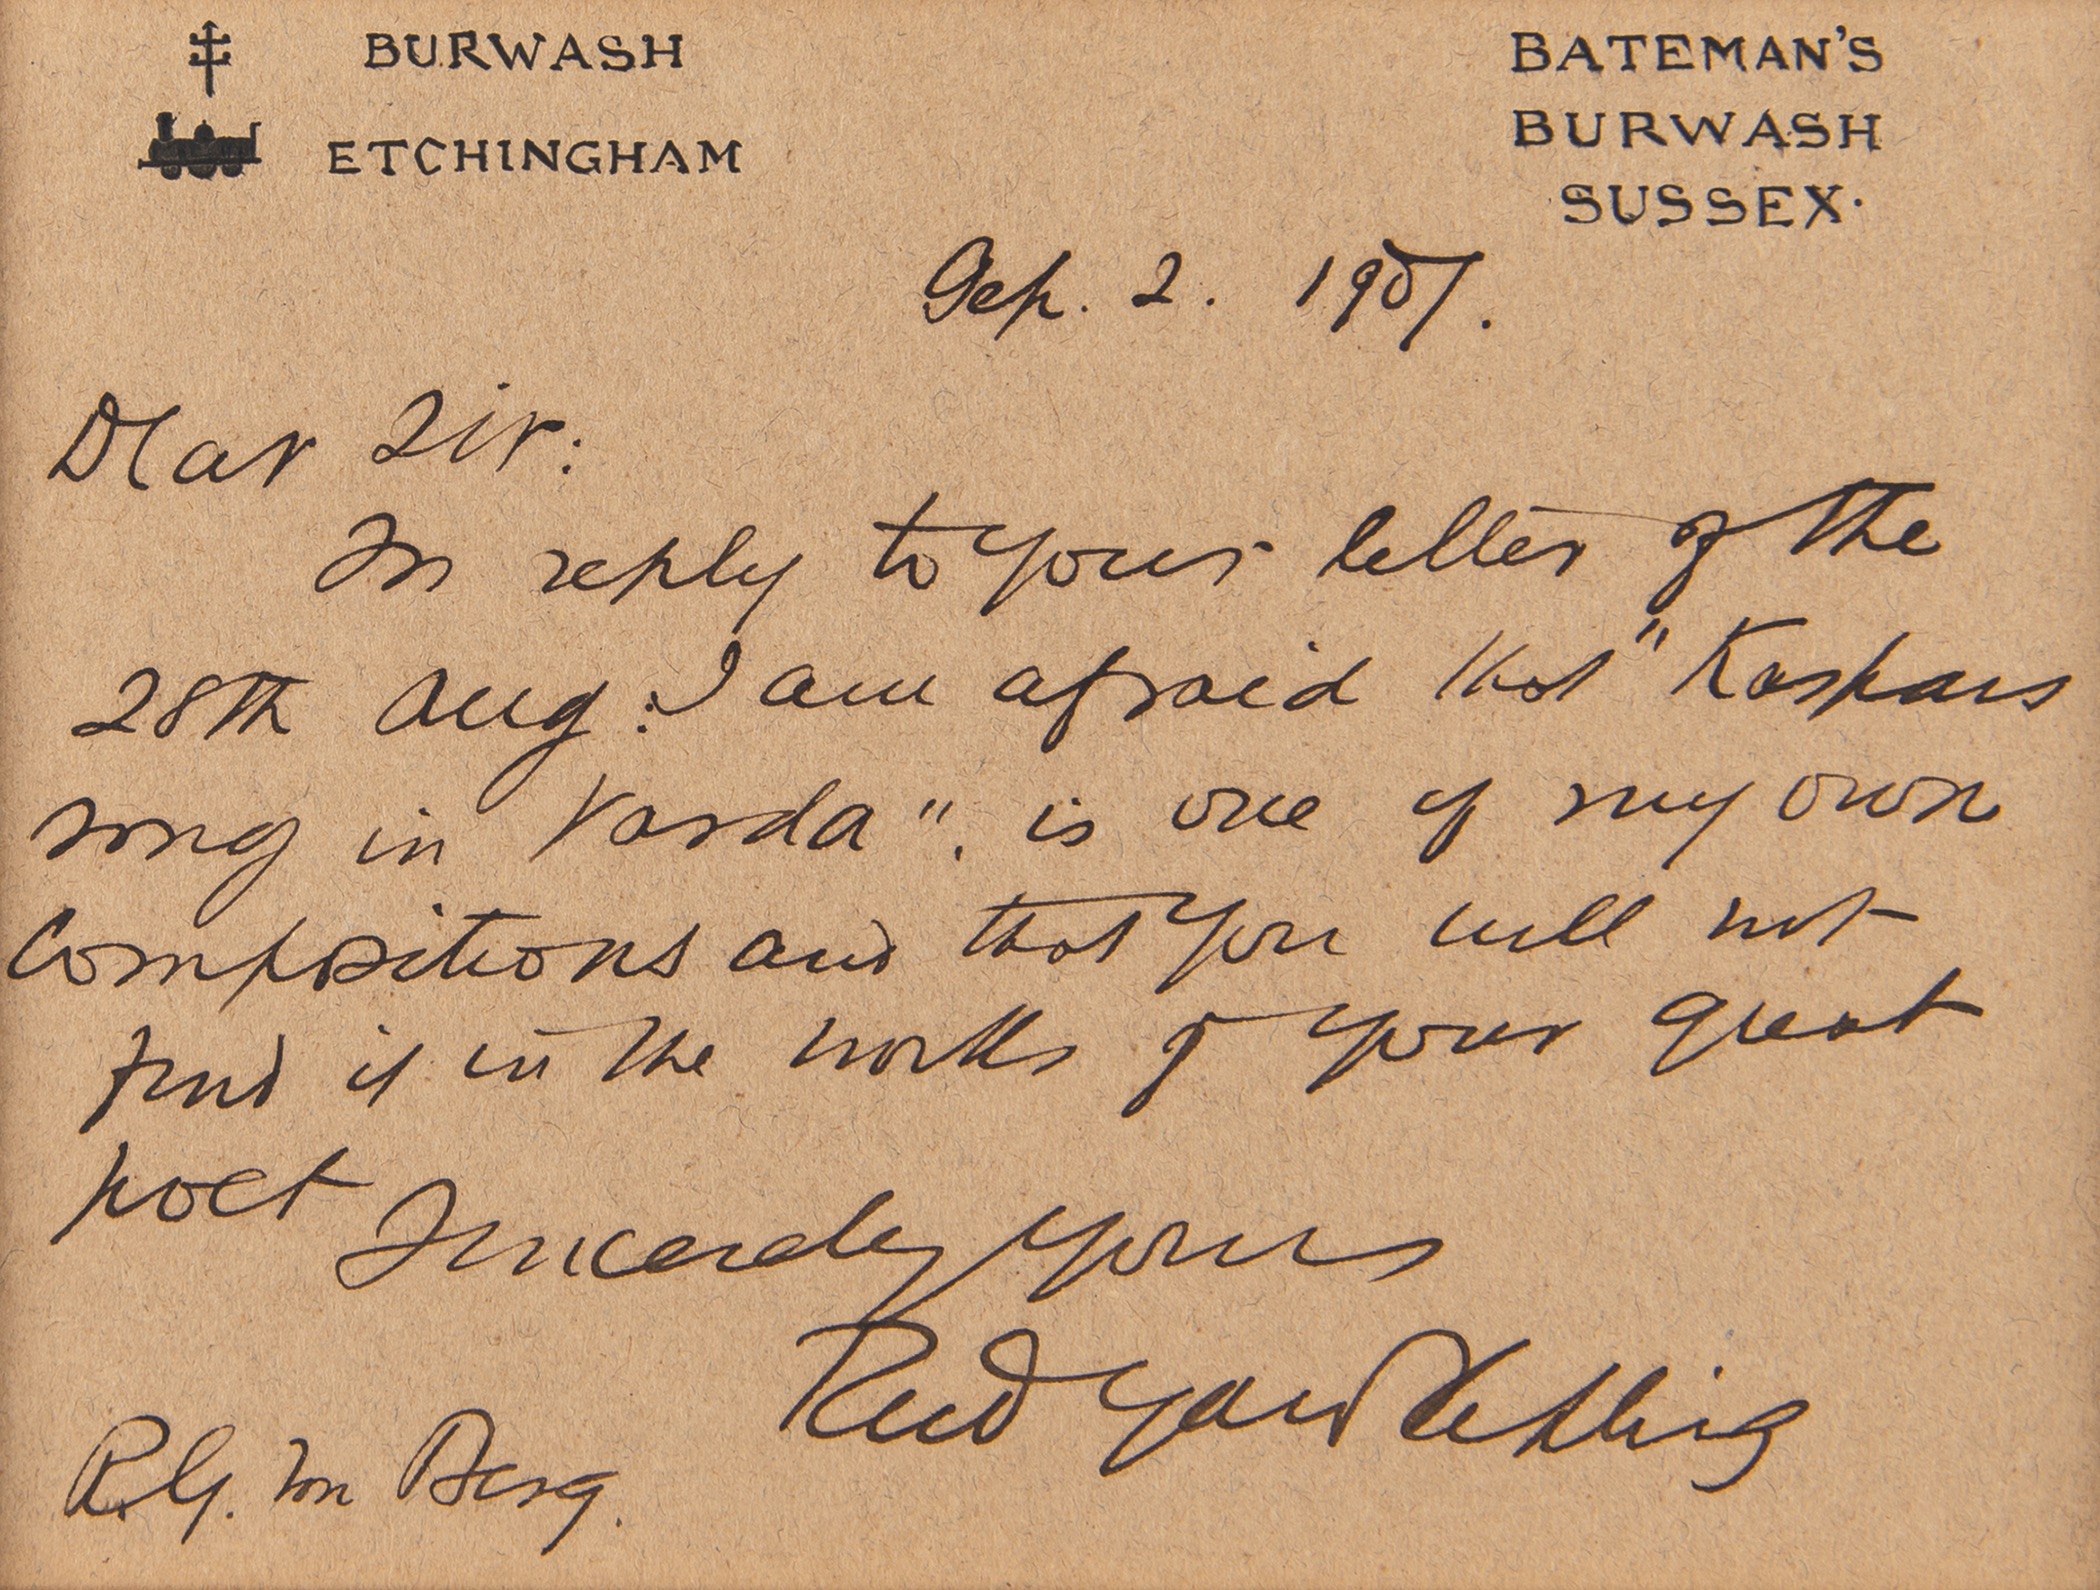 BURWASH
ETCHINGHAM
BATEMAN'S
BURWASH
SUSSEX.
Sep. 2. 1907.
Dear Sir:
In reply to your letter of the
28th Aug: I am afraid that "Kaspars
song in Varda". is one of my own
compositions and that you will not
find it in the works of your great
poet
Sincerely yours
Rudyard Kipling
R.G. von Berg.